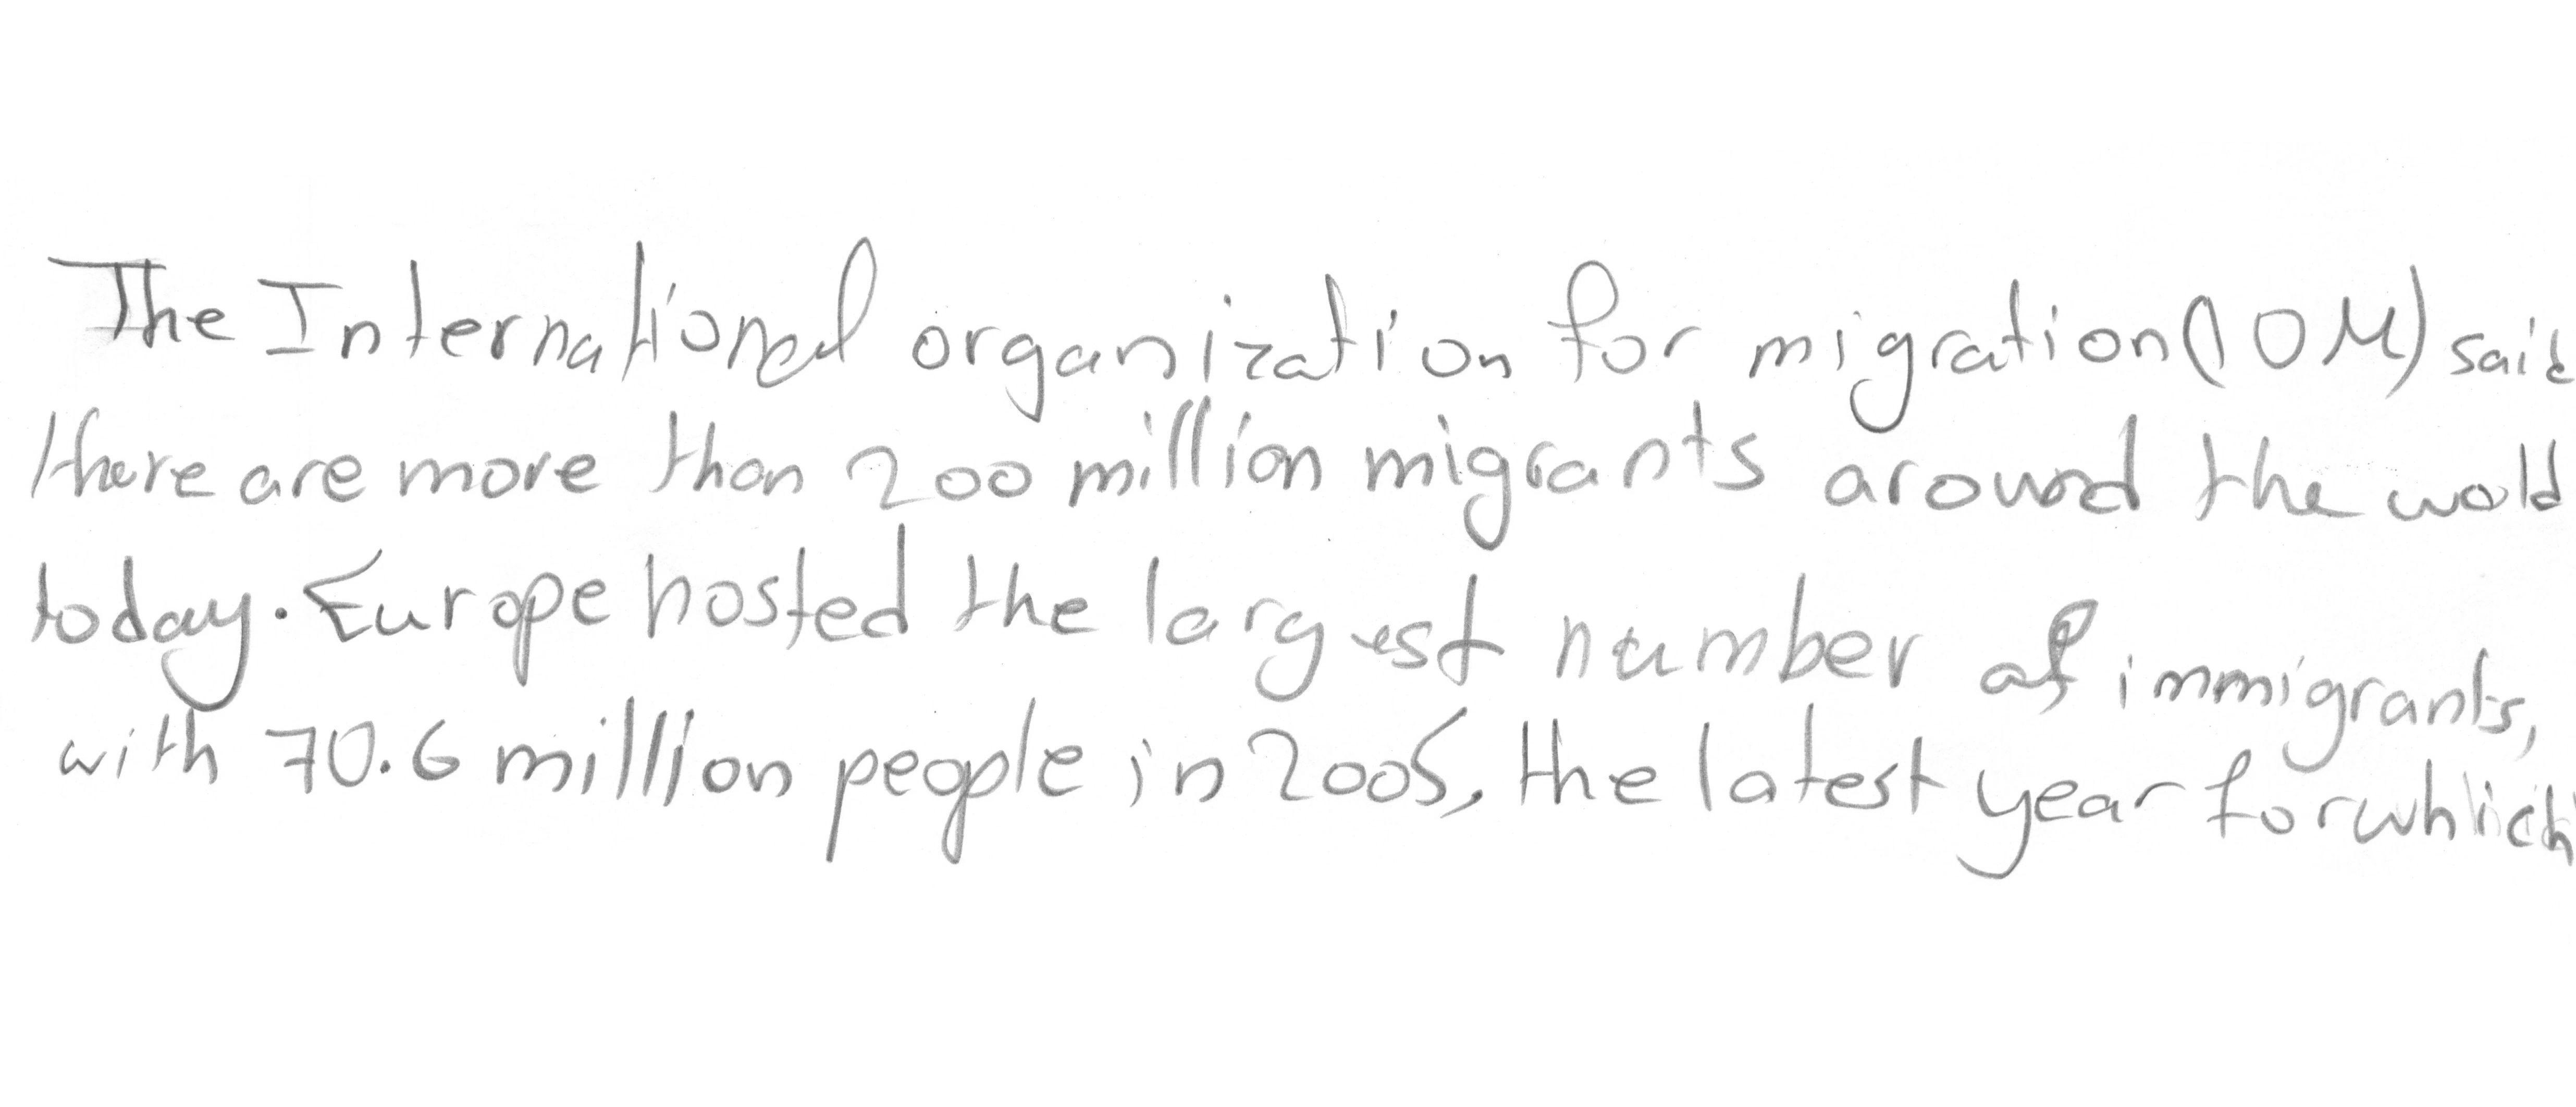 The International organization for migration (IOM) said
there are more than 200 million migrants around the wold
today. Europe hosted the largest number of immigrants,
with 70.6 million people in 2005, the latest year for which